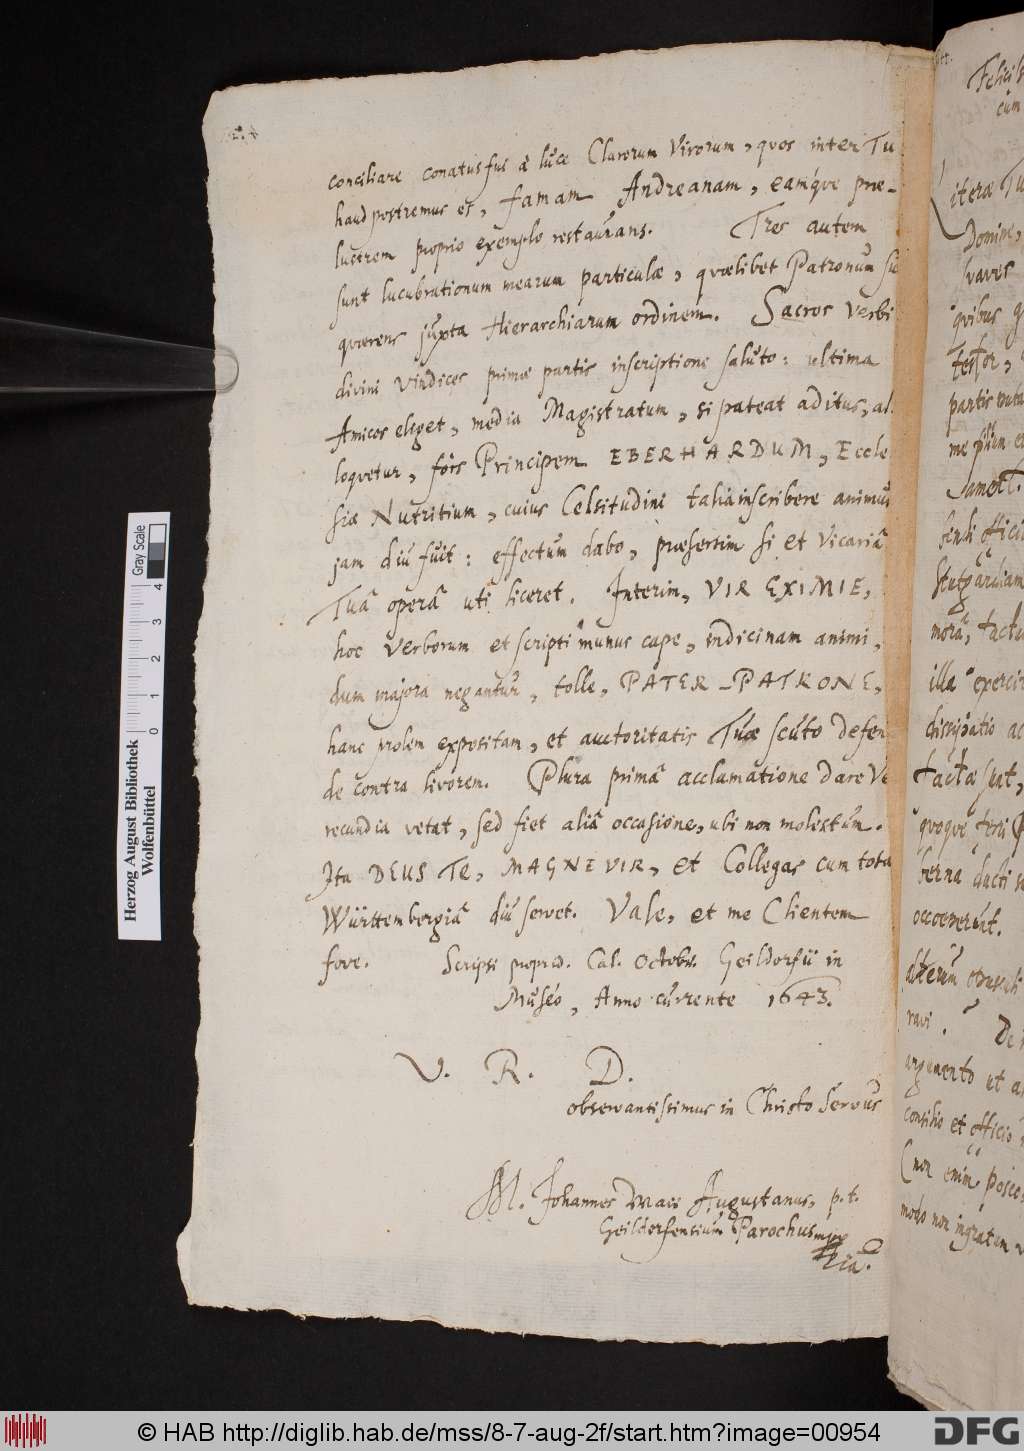 conciliare conatus fui à luce Clarorum Virorum, quos inter Tu
haud postremus es, famam Andreanam, eamque præ-
lustrem proprio exemplo restaurans. Tres autem
sunt lucubrationum mearum particulæ, quælibet Patronum su
quærens juxta Hierarchiarum ordinem. Sacros Verbi
divini Vindices primæ partis inscriptione saluto: ultima
Amicos eliget, media Magistratum, si pateat aditus, al
loquetur, fors Principem EBERHARDUM, Eccle
siæ Nutritium, cuius Celsitudini talia inscribere animus
jam diu fuit: effectum dabo, præsertim si et Vicariâ
Tuâ operâ uti liceret. Interim, VIR EXIMIE,
hoc Verborum et scripti munus cape, indicinam animi,
dum majora negantur, tolle, PATER-PATRONE,
hanc prolem expositam, et auctoritatis Tuæ scuto defen
de contra livorem. Plura primâ acclamatione dare Ve
recundia vetat, sed fiet aliâ occasione, ubi non molestum.
Ita DEUS TE, MAGNE VIR, et Collegas cum tota
Württembergiâ diu servet. Vale, et me Clientem
fove. Scripsi Cal. Octobr. Geildorfii in
Museo, Anno currente 1643.
V. R. D.
observantissimus in Christo Servus
M. Johannes Augustanus, p.t.
Geildorfensium Parochus mpp
ria.
Felicis
cum
iteræ Tu
Domine,
suaves
quibus
Testor,
partis
illa exerci
dissipatio ac
quoque
berna ducti
occoeperunt.
alterum
ravi. De
argumento et a
consilio et officio
(non enim posco
modo non ingratum
Herzog August Bibliothek
Wolfenbüttel
Gray Scale
0 1 2 3 4
© HAB http://diglib.hab.de/mss/8-7-aug-2f/start.htm?image=00954
DFG